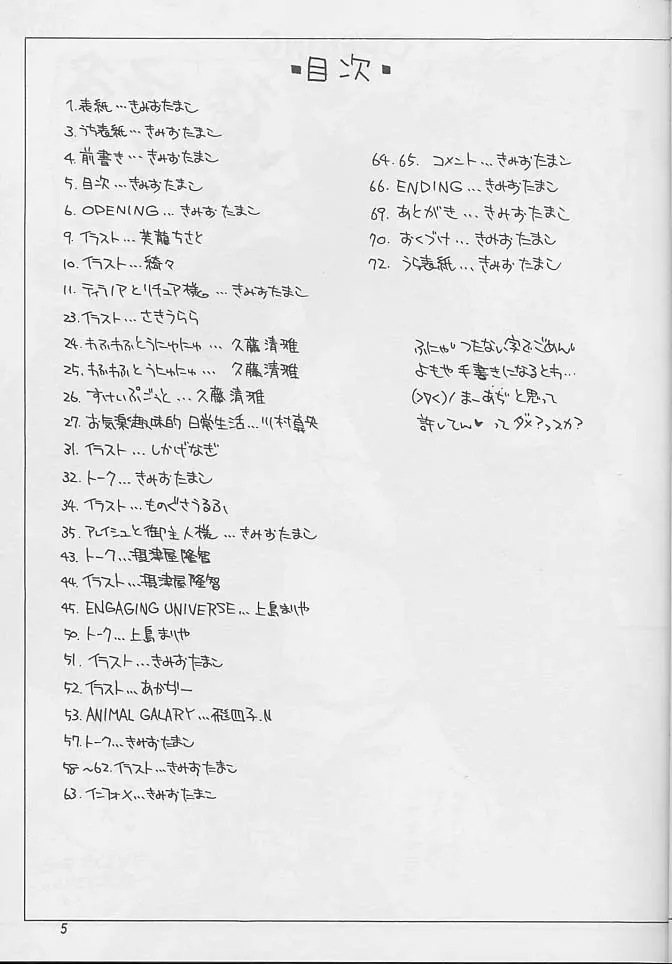 ▪目次▪
1. 表紙…きみおたまこ
3. うち表紙…きみおたまこ
4. 前書き…きみおたまこ
5. 目次…きみおたまこ
6. OPENING…きみおたまこ
9. イラスト…美龍ちさと
10. イラスト…綺々
11. ティラノアとリチュア様。…きみおたまこ
23. イラスト…さきうらら
24. わふわふとうにゅにゅ…久藤清雅
25. わふわふとうにゅにゅ…久藤清雅
26. すけいぷごっと…久藤清雅
27. お気楽趣味的日常生活…川村真央
31. イラスト…しかげなぎ
32. トーク…きみおたまこ
34. イラスト…ものぐさうるふ
35. アレイシュと御主人様…きみおたまこ
43. トーク…摂津屋隆智
44. イラスト…摂津屋隆智
45. ENGAGING UNIVERSE…上島まりや
50. トーク…上島まりや
51. イラスト…きみおたまこ
52. イラスト…あかぢー
53. ANIMAL GALARY…飛四子.N
57. トーク…きみおたまこ
58～62. イラスト…きみおたまこ
63. インフォメ…きみおたまこ
64.65. コメント…きみおたまこ
66. ENDING…きみおたまこ
69. あとがき…きみおたまこ
70. おくづけ…きみおたまこ
72. うら表紙…きみおたまこ
ふにゃ つたない字でごめん
よもや手書きになるとわ…
(>▽<)/ まーあぢと思って
許してん♥ ってダメ?っスか?
5